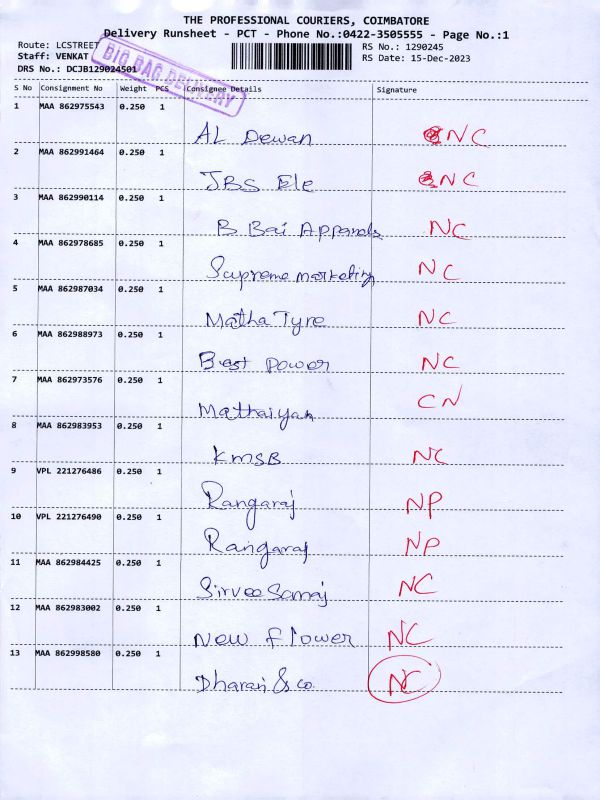 THE PROFESSIONAL COURIERS, COIMBATORE
Delivery Runsheet - PCT - Phone No.:0422-3505555 - Page No.:1
Route: LCSTREET RS No.: 1290245
Staff: VENKAT RS Date: 15-Dec-2023
DRS No.: DCJB129024501
BIG BAG DELIVERY
S No Consignment No Weight PCS Consignee Details Signature
1 MAA 862975543 0.250 1
AL Dewan NC
2 MAA 862991464 0.250 1
JBS Ele NC
3 MAA 862990114 0.250 1
B Bai Apparals NC
4 MAA 862978685 0.250 1
Supreme marketing NC
5 MAA 862987034 0.250 1
Matha Tyre NC
6 MAA 862988973 0.250 1
Best power NC
7 MAA 862973576 0.250 1
Mathaiyah CN
8 MAA 862983953 0.250 1
KMSB NC
9 VPL 221276486 0.250 1
Rangaraj NP
10 VPL 221276490 0.250 1
Rangaraj NP
11 MAA 862984425 0.250 1
Sirvee Samaj NC
12 MAA 862983002 0.250 1
New flower NC
13 MAA 862998580 0.250 1
Dharani & co. NC